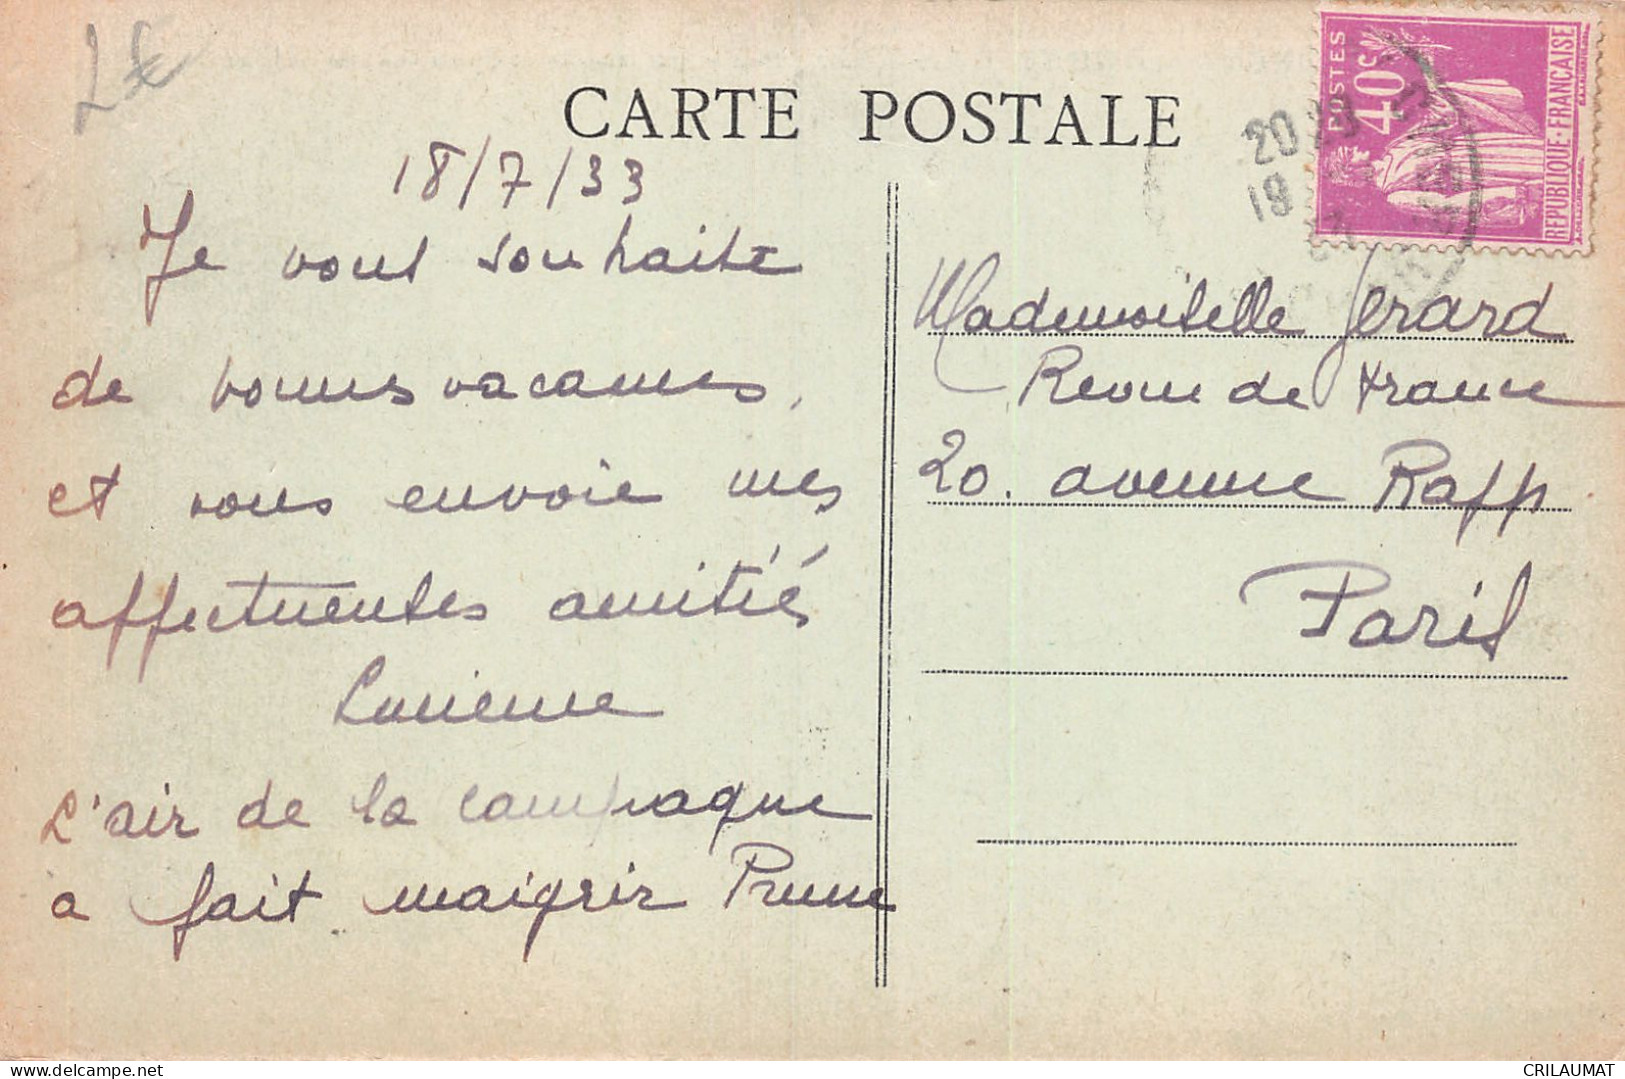 2€
CARTE POSTALE
18/7/33
Je vous souhaite
de bonnes vacances,
et vous envoie mes
affectueuses amitiés
Lucienne
L'air de la campagne
a fait maigrir Prune
POSTES
40c
REPUBLIQUE·FRANÇAISE
20
19
Mademoiselle Gérard
Revue de France
20. avenue Rapp
Paris
www.delcampe.net
CRILAUMAT